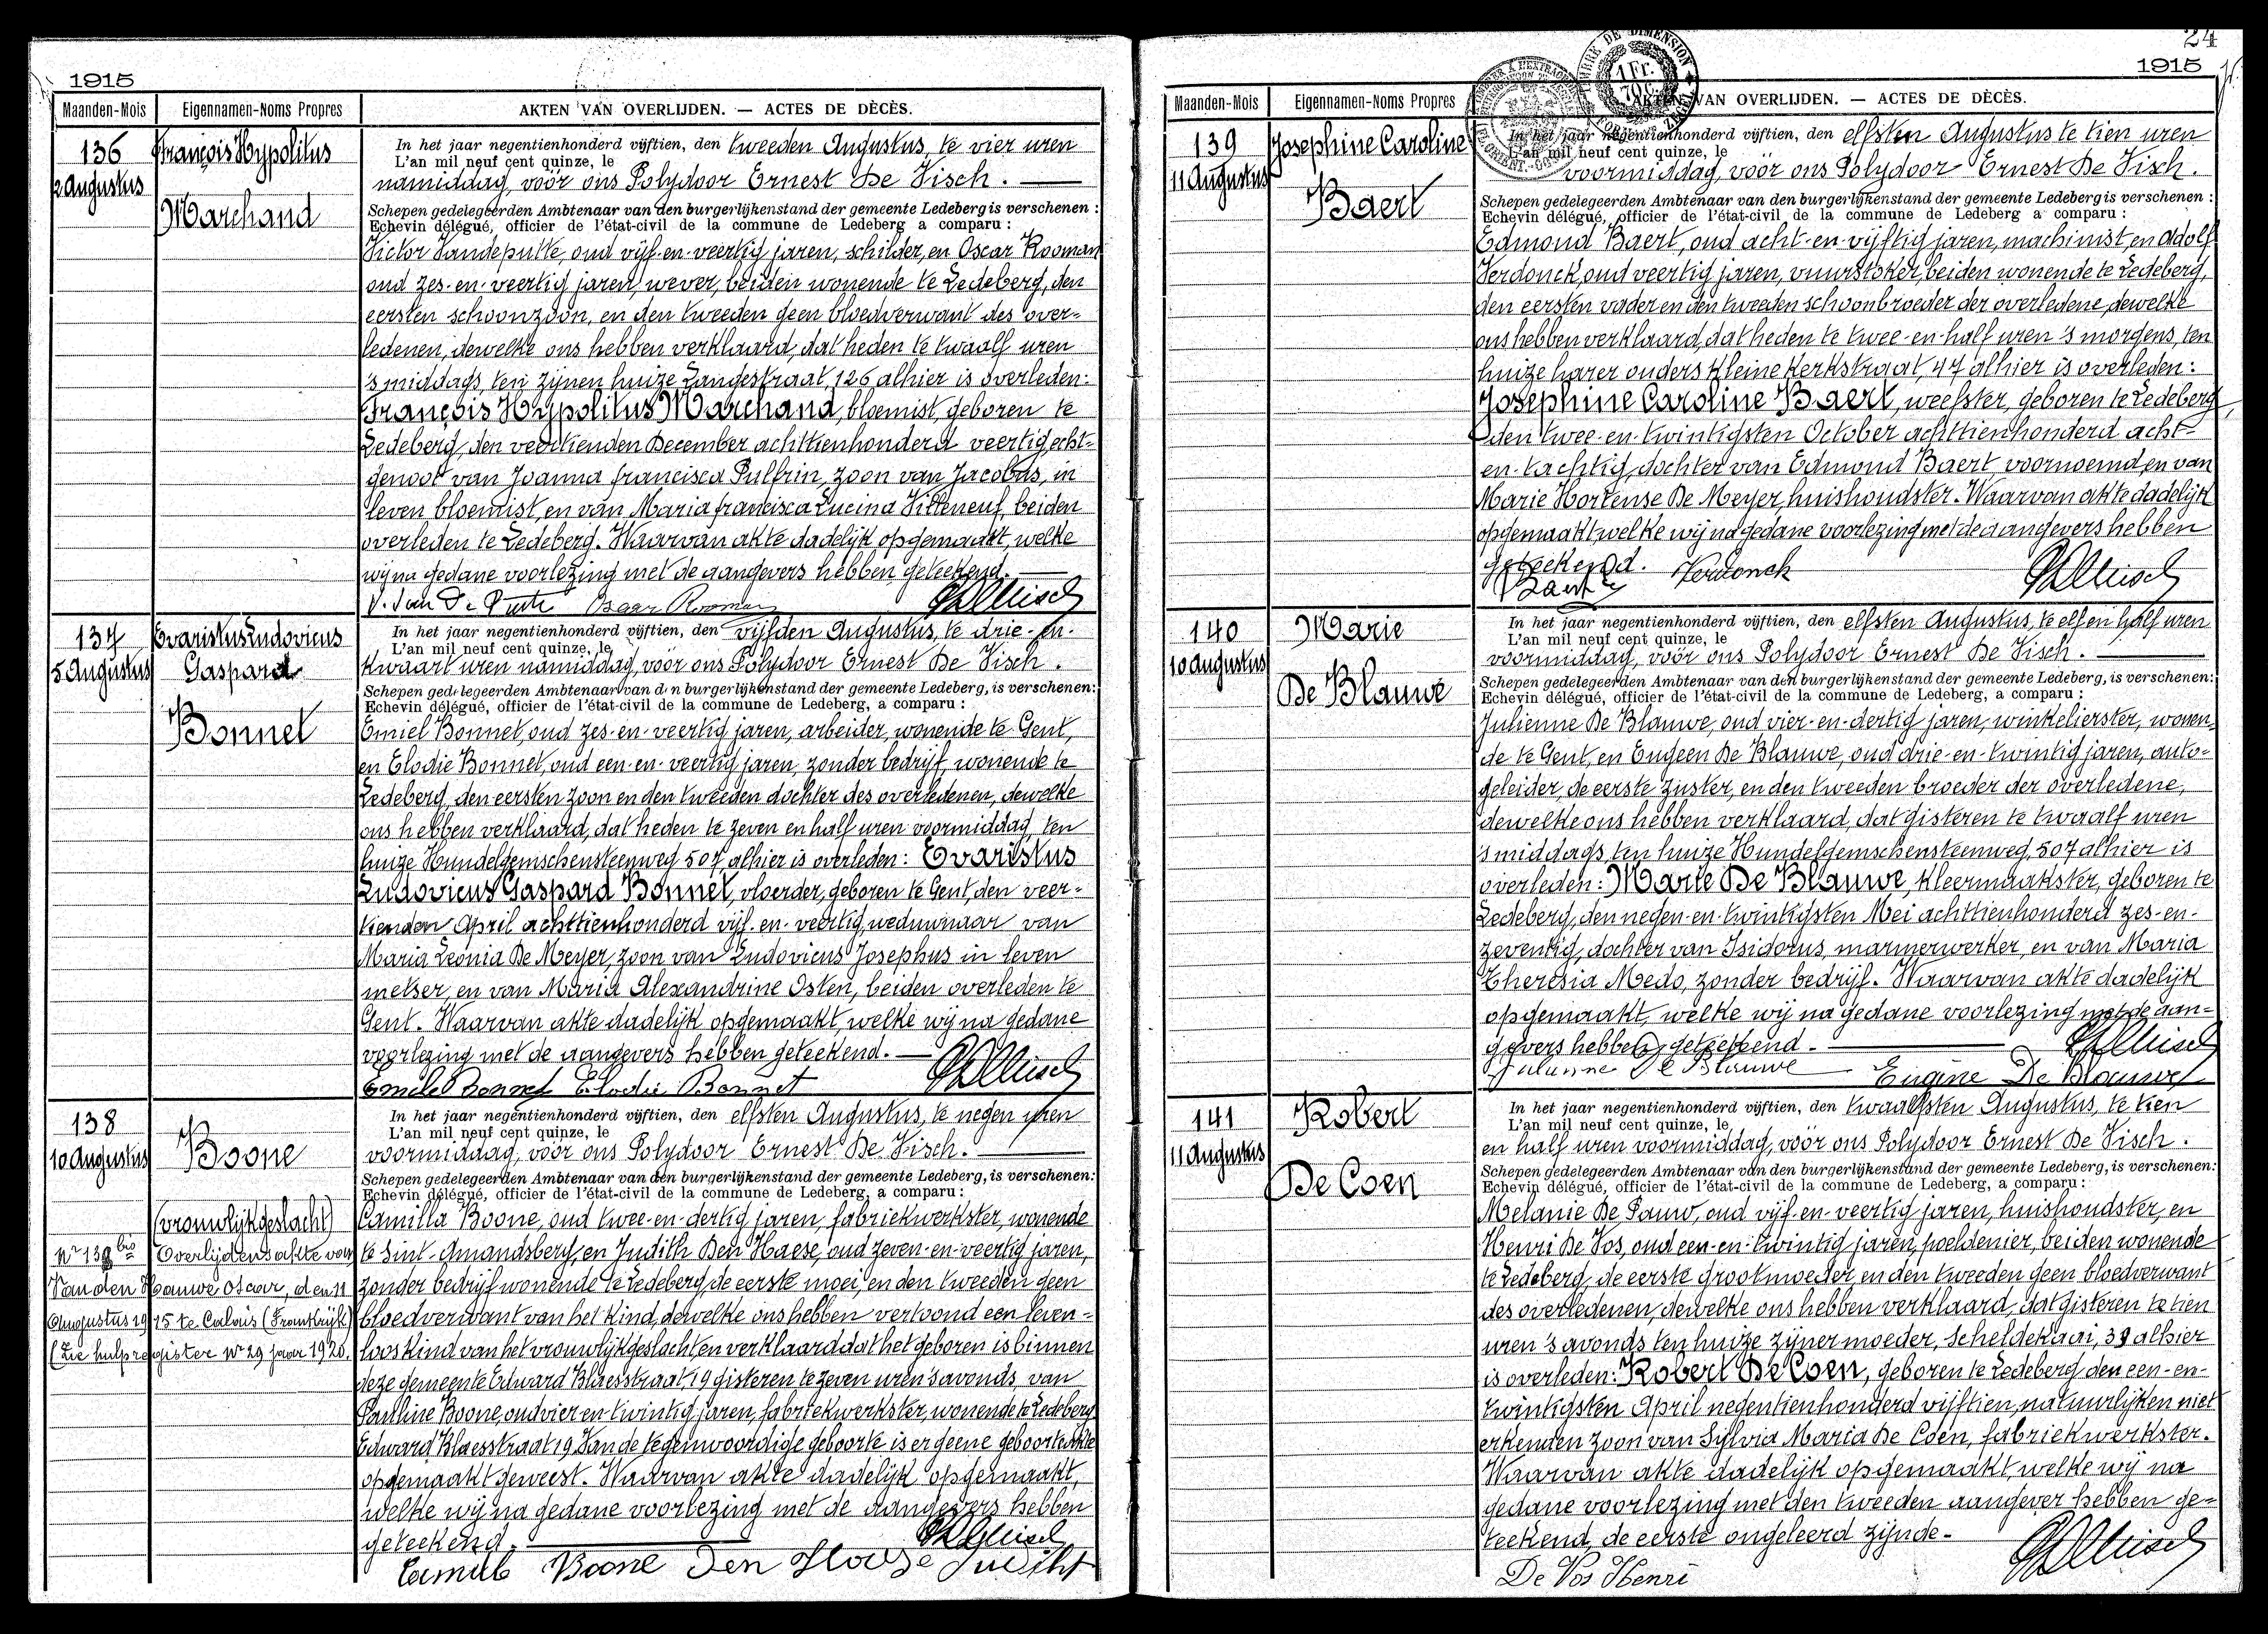 1915
Maanden-Mois Eigennamen-Noms Propres AKTEN VAN OVERLIJDEN. — ACTES DE DÈCÈS.
136
2 Augustus
François Hypolitus
Marchand
In het jaar negentienhonderd vijftien, den tweeden Augustus, te vier uren
L'an mil neuf cent quinze, le
namiddag, voór ons Polydoor Ernest De Visch. —
Schepen gedelegeerden Ambtenaar van den burgerlijkenstand der gemeente Ledeberg is verschenen :
Echevin délégué, officier de l'état-civil de la commune de Ledeberg a comparu :
Victor Vandeputte, oud vijf-en-veertig jaren, schilder, en Oscar Rooman
oud zes-en-veertig jaren, wever, beiden wonende te Ledeberg, den
eersten schoonzoon, en den tweeden geen bloedverwant des over-
ledenen, dewelke ons hebben verklaard, dat heden te twaalf uren
's middags, ten zijnen huize Langestraat, 126 alhier is overleden:
François Hypolitus Marchand, bloemist, geboren te
Ledeberg, den veertienden December achttienhonderd veertig, echt-
genoot van Joanna francisca Pulfrin, zoon van Jacobus, in
leven bloemist, en van Maria francisca Lucina Vitteneuf, beiden
overleden te Ledeberg. Waarvan akte dadelijk opgemaakt, welke
wij na gedane voorlezing met de aangevers hebben geteekend. —
V. Van De Putte Oscar Rooman
137
5 Augustus
Evaristus Ludovicus
Gaspard
Bonnet
In het jaar negentienhonderd vijftien, den vijfden Augustus, te drie-en-
L'an mil neuf cent quinze, le
kwaart uren namiddag, voór ons Polydoor Ernest De Visch.
Schepen gedelegeerden Ambtenaar van den burgerlijkenstand der gemeente Ledeberg, is verschenen:
Echevin délégué, officier de l'état-civil de la commune de Ledeberg, a comparu :
Emiel Bonnet, oud zes-en-veertig jaren, arbeider, wonende te Gent,
en Elodie Bonnet, oud een-en-veertig jaren, zonder bedrijf, wonende te
Ledeberg, den eersten zoon en den tweeden dochter des overledenen, dewelke
ons hebben verklaard, dat heden te zeven en half uren voormiddag, ten
huize Hundelgemschensteenweg 507 alhier is overleden: Evaristus
Ludovicus Gaspard Bonnet, vloerder, geboren te Gent, den veer-
tienden April achttienhonderd vijf-en-veertig, weduwnaar van
Maria Leonia De Meyer, zoon van Ludovicus Josephus in leven
metser, en van Maria Alexandrine Osten, beiden overleden te
Gent. Waarvan akte dadelijk opgemaakt, welke wij na gedane
voorlezing met de aangevers hebben geteekend. —
Emile Bonnet Elodie Bonnet
138
10 Augustus
Boone
(vrouwlijkgeslacht)
Nr 138 bis Overlijdensakte van
Van den Hauwe Oscar, den 11
Augustus 1915 te Calais (Frankrijk)
(Zie hulpregister Nr 29 jaar 1920.
In het jaar negentienhonderd vijftien, den elfsten Augustus, te negen uren
L'an mil neuf cent quinze, le
voormiddag, voór ons Polydoor Ernest De Visch. —
Schepen gedelegeerden Ambtenaar van den burgerlijkenstand der gemeente Ledeberg, is verschenen:
Echevin délégué, officier de l'état-civil de la commune de Ledeberg, a comparu :
Camilla Boone, oud twee-en-dertig jaren, fabriekwerkster, wonende
te Sint-Amandsberg, en Judith Den Haese, oud zeven-en-veertig jaren,
zonder bedrijf wonende te Ledeberg, de eerste moei, en den tweeden geen
bloedverwant van het kind, dewelke ons hebben vertoond een leven-
loos kind van het vrouwlijkgeslacht en verklaard dat het geboren is binnen
deze gemeente Edward Blaesstraat, 19 gisteren te zeven uren 's avonds, van
Pauline Boone, oud vier en twintig jaren, fabriekwerkster, wonende te Ledeberg
Edward Blaesstraat 19 Van de tegenwoordige geboorte is er geene geboorteakte
opgemaakt geweest. Waarvan akte dadelijk opgemaakt,
welke wij na gedane voorlezing met de aangevers hebben
geteekend. —
Camilb Boone Den Hae se Judiht
24
1915
Maanden-Mois Eigennamen-Noms Propres AKTEN VAN OVERLIJDEN. — ACTES DE DÈCÈS.
139
11 Augustus
Josephine Caroline
Baert
In het jaar negentienhonderd vijftien, den elfsten Augustus te tien uren
L'an mil neuf cent quinze, le
voormiddag, voór ons Polydoor Ernest De Visch.
Schepen gedelegeerden Ambtenaar van den burgerlijkenstand der gemeente Ledeberg is verschenen :
Echevin délégué, officier de l'état-civil de la commune de Ledeberg a comparu :
Edmond Baert, oud acht-en-vijftig jaren, machinist, en Adolf
Verdonck, oud veertig jaren, vuurstoker, beiden wonende te Ledeberg,
den eersten vader en den tweeden schoonbroeder der overledene, dewelke
ons hebben verklaard, dat heden te twee-en-half uren 's morgens, ten
huize harer ouders kleine Kerkstraat, 47 alhier is overleden:
Josephine Caroline Baert, weefster, geboren te Ledeberg,
den twee-en-twintigsten October achttienhonderd acht-
en-tachtig, dochter van Edmond Baert, voornoemd, en van
Marie Hortense De Meyer, huishoudster. Waarvan akte dadelijk
opgemaakt, welke wij na gedane voorlezing met de aangevers hebben
geteekend. Verdonck
Baert
140
10 Augustus
Marie
De Blauwe
In het jaar negentienhonderd vijftien, den elfsten Augustus, te elf en half uren
L'an mil neuf cent quinze, le
voormiddag, voór ons Polydoor Ernest De Visch. —
Schepen gedelegeerden Ambtenaar van den burgerlijkenstand der gemeente Ledeberg, is verschenen:
Echevin délégué, officier de l'état-civil de la commune de Ledeberg, a comparu :
Julienne De Blauwe, oud vier-en-dertig jaren, winkelierster, wonen-
de te Gent, en Eugeen De Blauwe, oud drie-en-twintig jaren, auto-
geleider, de eerste zuster, en den tweeden broeder der overledene,
dewelke ons hebben verklaard, dat gisteren te twaalf uren
's middags, ten huize Hundelgemschensteenweg, 507 alhier is
overleden: Marie De Blauwe, kleermaakster, geboren te
Ledeberg, den negen-en-twintigsten Mei achttienhonderd zes-en-
zeventig, dochter van Isidorus, marmerwerker, en van Maria
Theresia Medo, zonder bedrijf. Waarvan akte dadelijk
opgemaakt, welke wij na gedane voorlezing met de aan-
gevers hebben geteekend. —
Julienne De Blauwe Eugène De Blauwe
141
11 Augustus
Robert
De Coen
In het jaar negentienhonderd vijftien, den twaalfsten Augustus, te tien
L'an mil neuf cent quinze, le
en half uren voormiddag, voór ons Polydoor Ernest De Visch.
Schepen gedelegeerden Ambtenaar van den burgerlijkenstand der gemeente Ledeberg, is verschenen:
Echevin délégué, officier de l'état-civil de la commune de Ledeberg, a comparu :
Melanie De Pauw, oud vijf-en-veertig jaren, huishoudster, en
Henri De Vos, oud een-en-twintig jaren, poeldenier, beiden wonende
te Ledeberg, de eerste grootmoeder, en den tweeden geen bloedverwant
des overledenen, dewelke ons hebben verklaard, dat gisteren te tien
uren 's avonds ten huize zijner moeder, Scheldekaai, 39 alhier
is overleden: Robert De Coen, geboren te Ledeberg den een-en-
twintigsten April negentienhonderd vijftien, natuurlijken niet
erkenden zoon van Sylvia Maria De Coen, fabriekwerkster.
Waarvan akte dadelijk opgemaakt, welke wij na
gedane voorlezing met den tweeden aangever hebben ge-
teekend, de eerste ongeleerd zijnde-
De Vos Henri